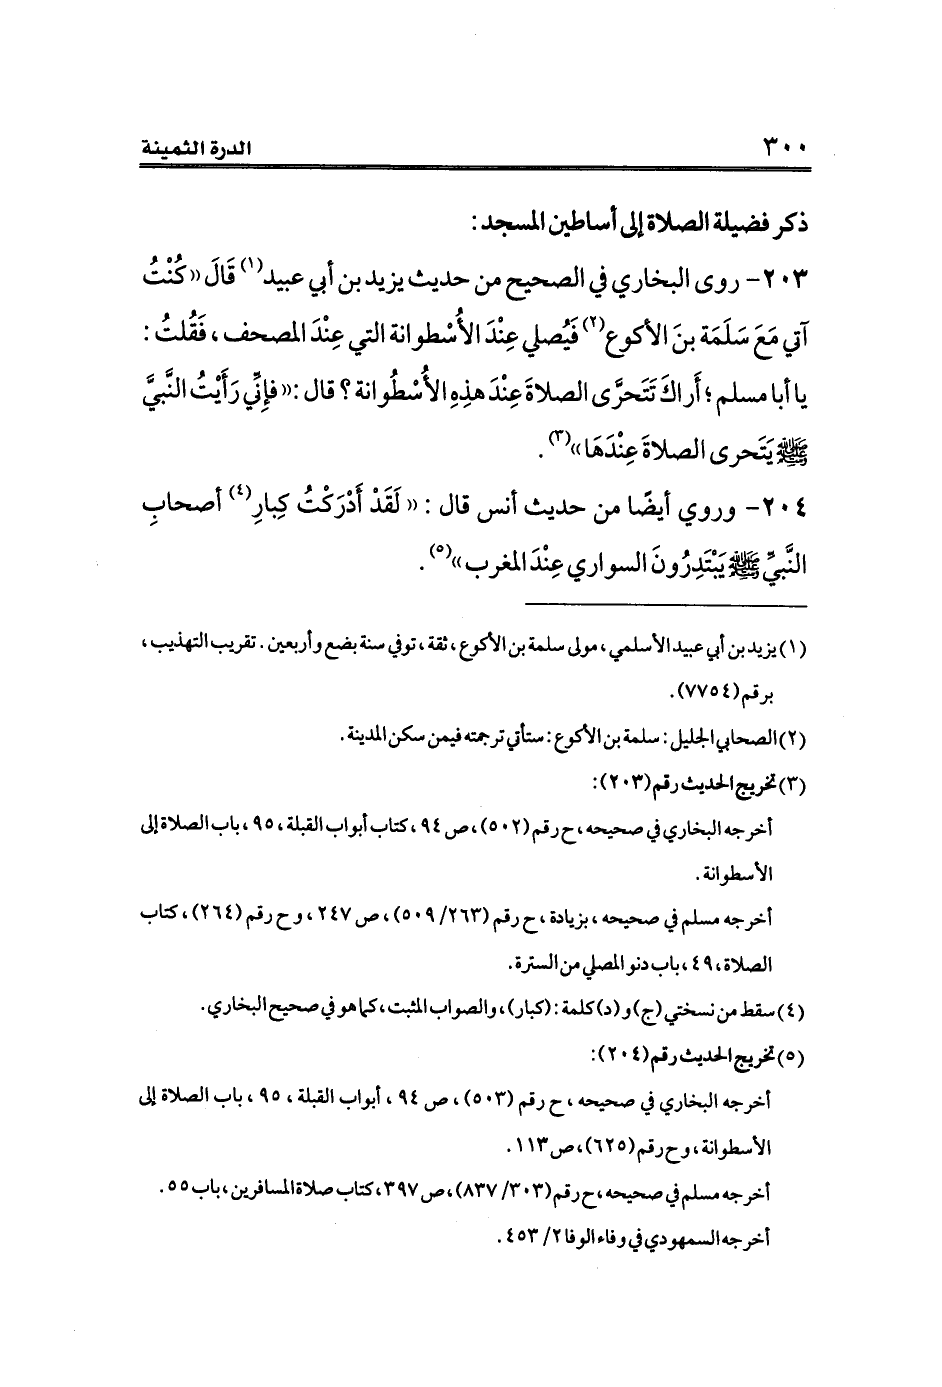 ٣٠٠ الدرة الثمينة
ذكر فضيلة الصلاة إلى أساطين المسجد :
٢٠٣- روى البخاري في الصحيح من حديث يزيد بن أبي عبيد(١) قَالَ «كُنْتُ
آتي مَعَ سَلَمَة بنَ الأكوع(٢) فَيُصلي عِنْدَ الأُسْطوانة التي عِنْدَ المصحف ، فَقُلتُ :
يا أبا مسلم ؛ أَراكَ تَتَحرَّى الصلاةَ عِنْدَ هذِهِ الأُسْطُوانة ؟ قال :«فإنِّي رَأيْتُ النَّبيَّ
ﷺ يَتَحرى الصلاةَ عِنْدَهَا»(٣) .
٢٠٤- وروي أيضًا من حديث أنس قال : « لَقَدْ أَدْرَكْتُ كِبارِ(٤) أصحابِ
النَّبيِّ ﷺ يَبْتَدِرُونَ السواري عِنْدَ المغرب»(٥) .
(١) يزيد بن أبي عبيد الأسلمي ، مولى سلمة بن الأكوع ، ثقة ، توفي سنة بضع وأربعين . تقريب التهذيب ،
برقم (٧٧٥٤) .
(٢) الصحابي الجليل : سلمة بن الأكوع : ستأتي ترجمته فيمن سكن المدينة .
(٣) تخريج الحديث رقم (٢٠٣) :
أخرجه البخاري في صحيحه ، ح رقم (٥٠٢) ، ص ٩٤ ، كتاب أبواب القبلة ، ٩٥ ، باب الصلاة إلى
الأسطوانة .
أخرجه مسلم في صحيحه ، بزيادة ، ح رقم (٢٦٣/ ٥٠٩) ، ص ٢٤٧ ، و ح رقم (٢٦٤) ، كتاب
الصلاة ، ٤٩ ، باب دنو المصلي من السترة .
(٤) سقط من نسختي (ج) و (د) كلمة : (كبار) ، والصواب المثبت ، كما هو في صحيح البخاري .
(٥) تخريج الحديث رقم (٢٠٤) :
أخرجه البخاري في صحيحه ، ح رقم (٥٠٣) ، ص ٩٤ ، أبواب القبلة ، ٩٥ ، باب الصلاة إلى
الأسطوانة ، و ح رقم (٦٢٥) ، ص ١١٣ .
أخرجه مسلم في صحيحه ، ح رقم (٣٠٣/ ٨٣٧) ، ص ٣٩٧ ، كتاب صلاة المسافرين ، باب ٥٥ .
أخرجه السمهودي في وفاء الوفا ٢/ ٤٥٣ .